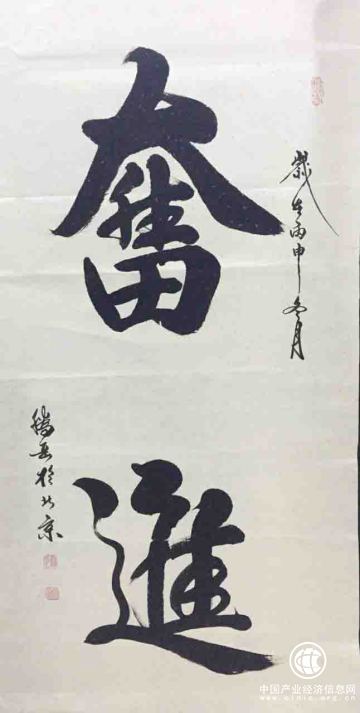 奮進
歲在丙申冬月
於北京
中国产业经济信息网
www.cinic.org.cn